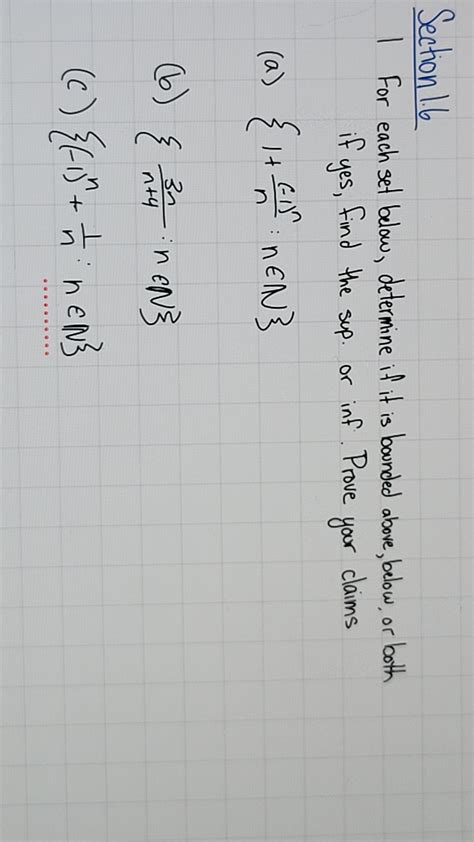 Section 1.6
1 For each set below, determine if it is bounded above, below, or both
if yes, find the sup. or inf. Prove your claims
(a) { 1 + (-1)^n/n : n ∈ ℕ }
(b) { 3n/n+4 : n ∈ ℕ }
(c) { (-1)^n + 1/n : n ∈ ℕ }